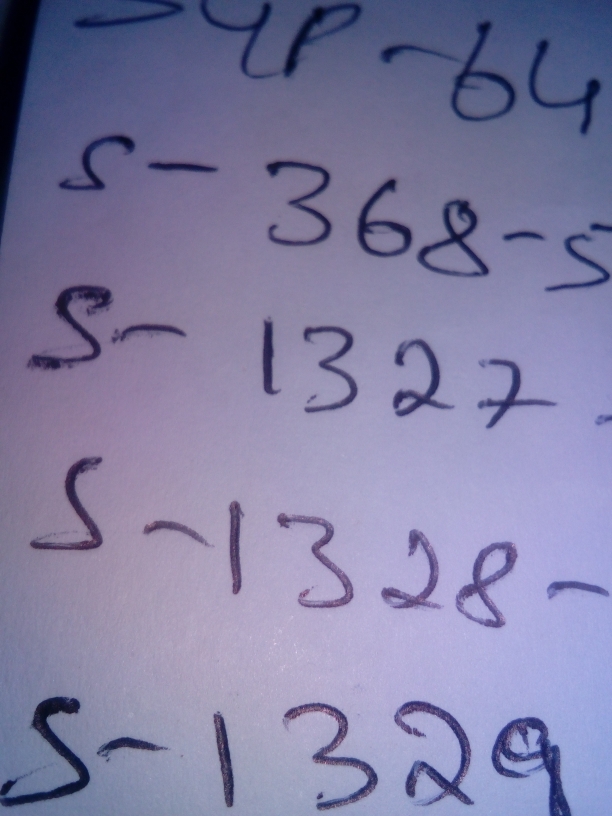 SYP-64
S-368-5
S-1327-
S-1328-
S-1329